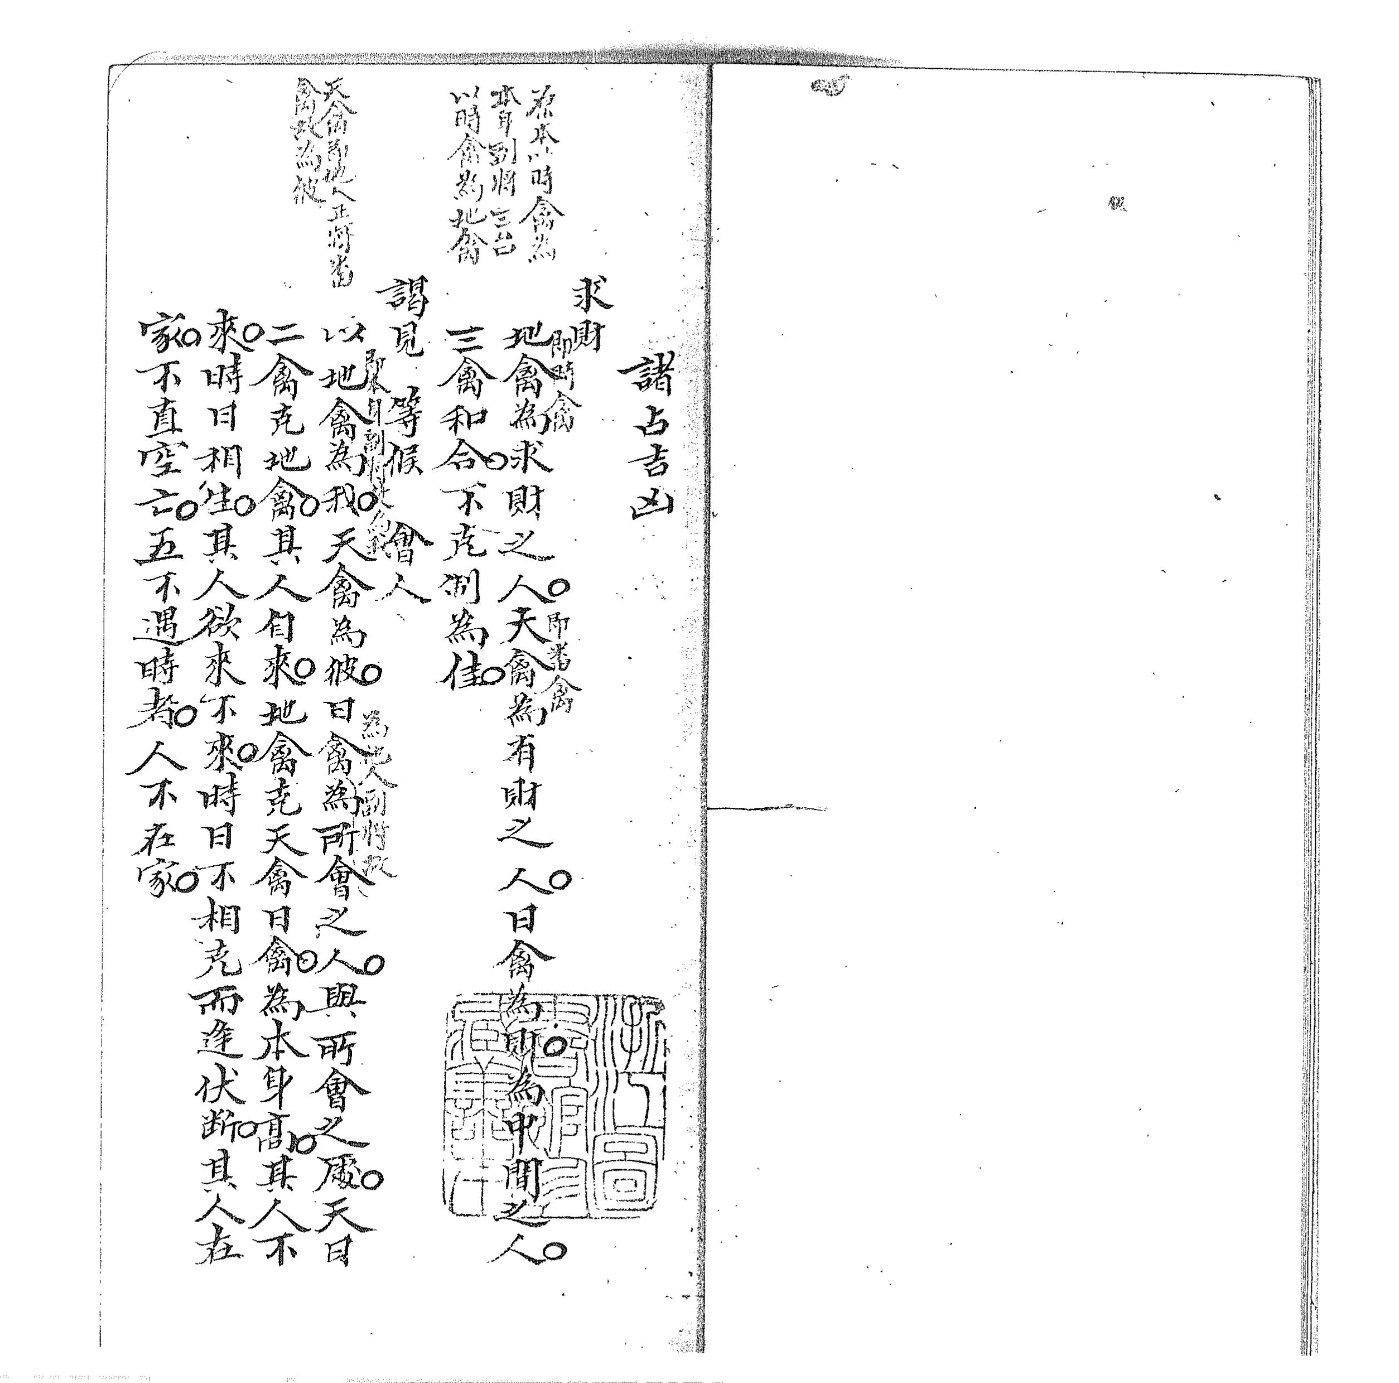 諸占吉凶
求財
地禽為求財之人天禽為有財之人日禽為財為中間之人
即時禽
即翻禽
三禽和合不克制為佳
謁見 等候 會人
以地禽為我天禽為彼日禽為所會之人與所會之處天日
為他人副將故
二禽克地禽其人自來地禽克天禽日禽為本身高其人不
來時日相生其人欲來不來時日不相克而逢伏斷其人在
家不直空亡五不遇時者人不在家
本以時禽為
本身副將
以時禽為地禽
天禽為他人正將
禽故為彼